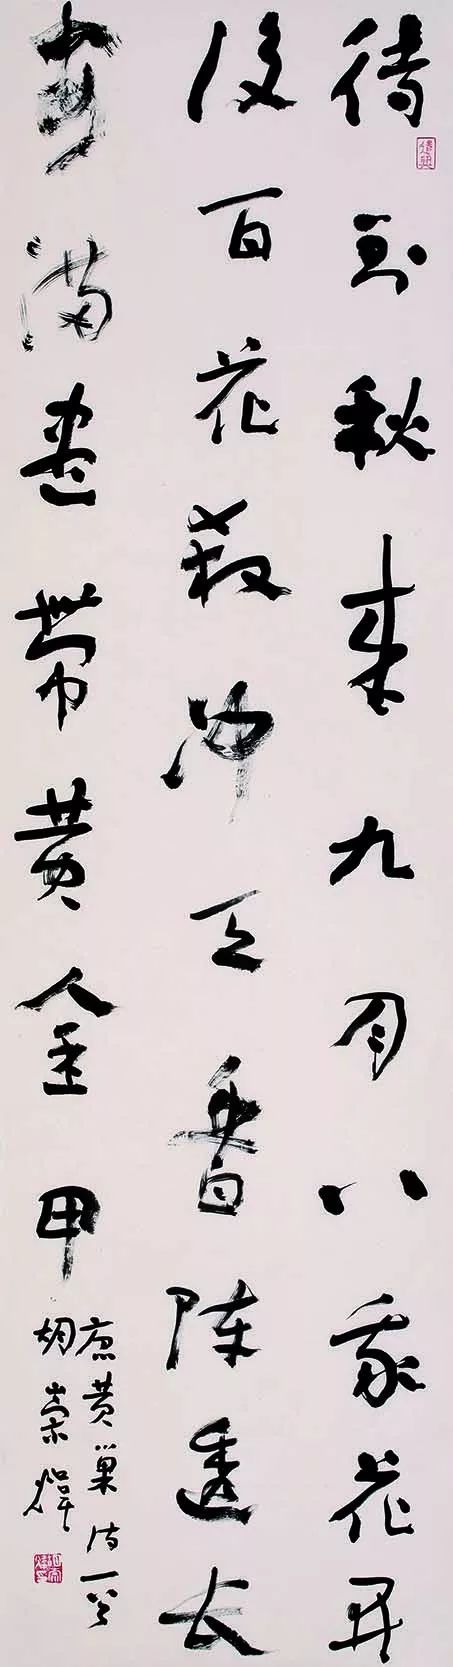 待到秋来九月八我花开
後百花殺冲天香阵透长
安满盡帶黄金甲
唐黄巢诗一首
胡崇煒